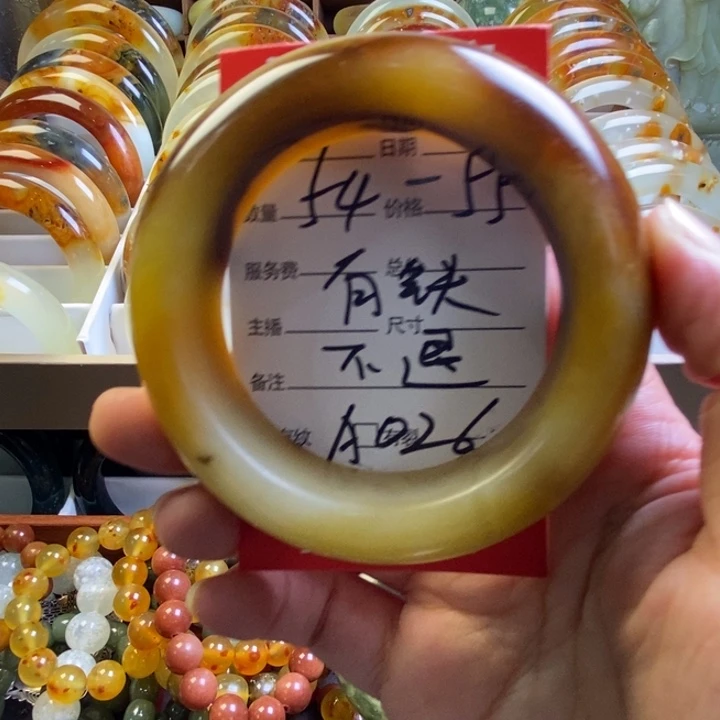 日期
54-55
数量 价格
服务费 总
有缺
主播 尺寸
不退
备注
A026